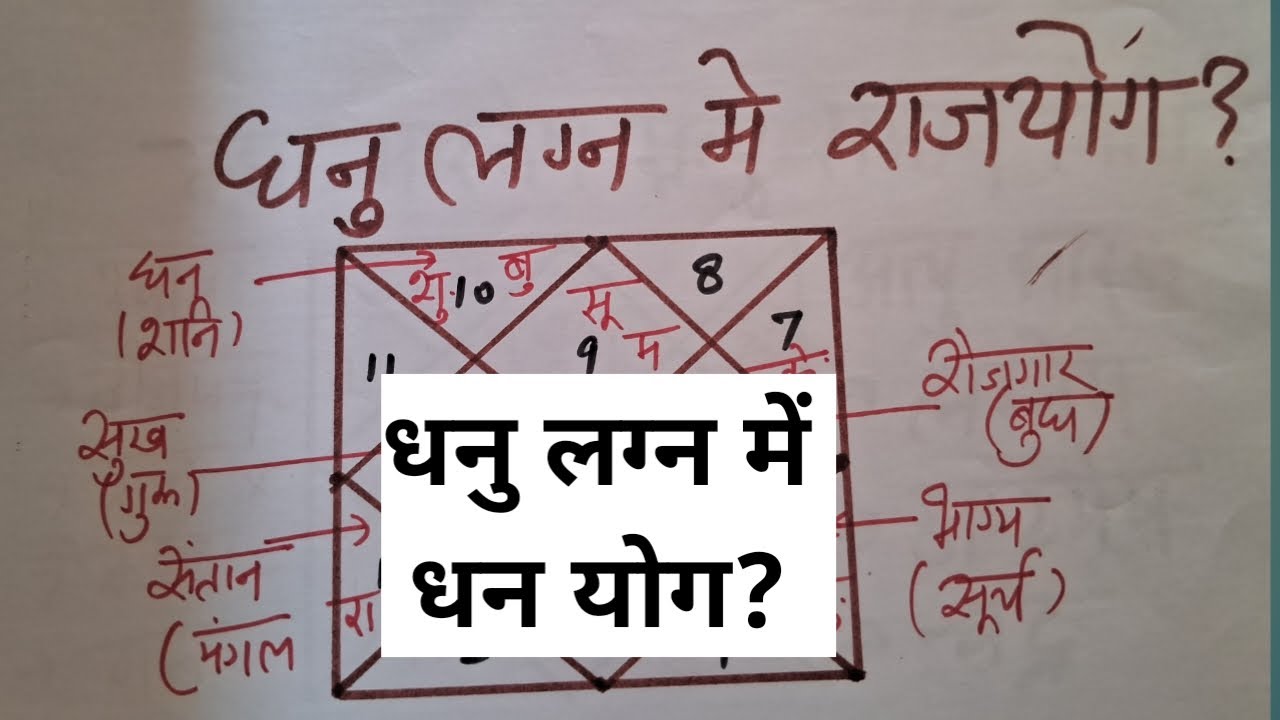 धनु लग्न मे राजयोग ?
धन
(शनि)
शु. 10 बु
सू
8
9 म
7
11
रोजगार
(बुध)
सुख
(गुरु)
धनु लग्न में
धन योग?
भाग्य
(सूर्य)
संतान
(मंगल
रा